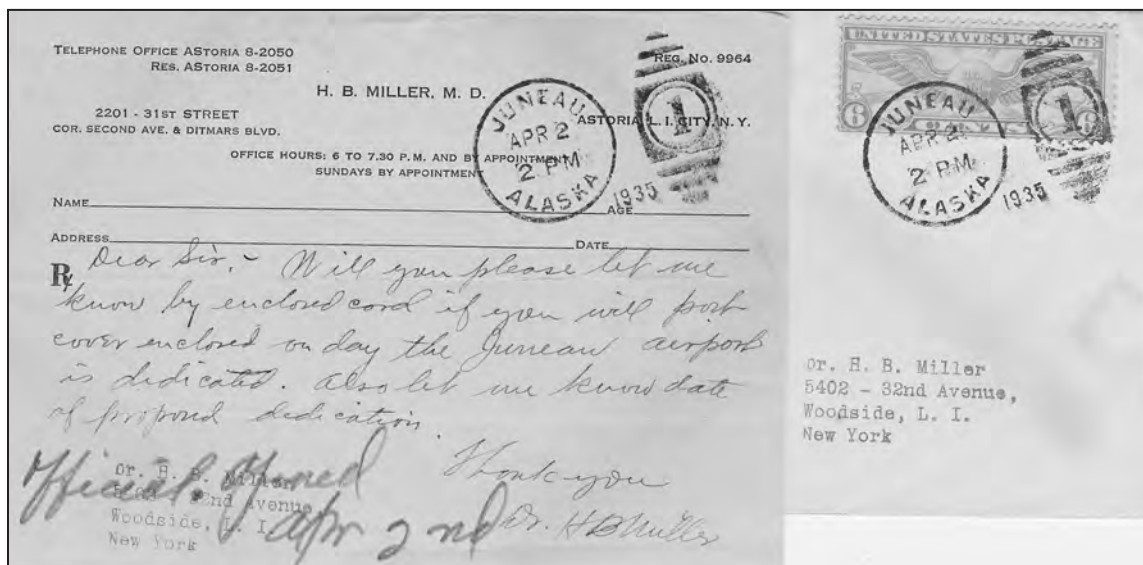 TELEPHONE OFFICE ASTORIA 8-2050
RES. ASTORIA 8-2051
REG. NO. 9964
H. B. MILLER, M. D.
2201 - 31ST STREET
COR. SECOND AVE. & DITMARS BLVD.
ASTORIA, L. I. CITY, N. Y.
OFFICE HOURS: 6 TO 7.30 P. M. AND BY APPOINTMENT
SUNDAYS BY APPOINTMENT
JUNEAU
APR 2
2 PM
ALASKA
1935
1
NAME
AGE
ADDRESS
DATE
℞ Dear Sir, - Will you please let me
know by enclosed card if you will post
cover enclosed on day the Juneau airport
is dedicated. Also let me know date
of proposed dedication.
Thank you
Dr. H B Miller
Dr. H. B. Miller
32nd Avenue
Woodside, L. I.
New York
Official. Opened
Apr 2nd
UNITED STATES POSTAGE
6 CENTS 6
JUNEAU
APR 2
2 PM
ALASKA
1935
1
Dr. H. B. Miller
5402 - 32nd Avenue,
Woodside, L. I.
New York